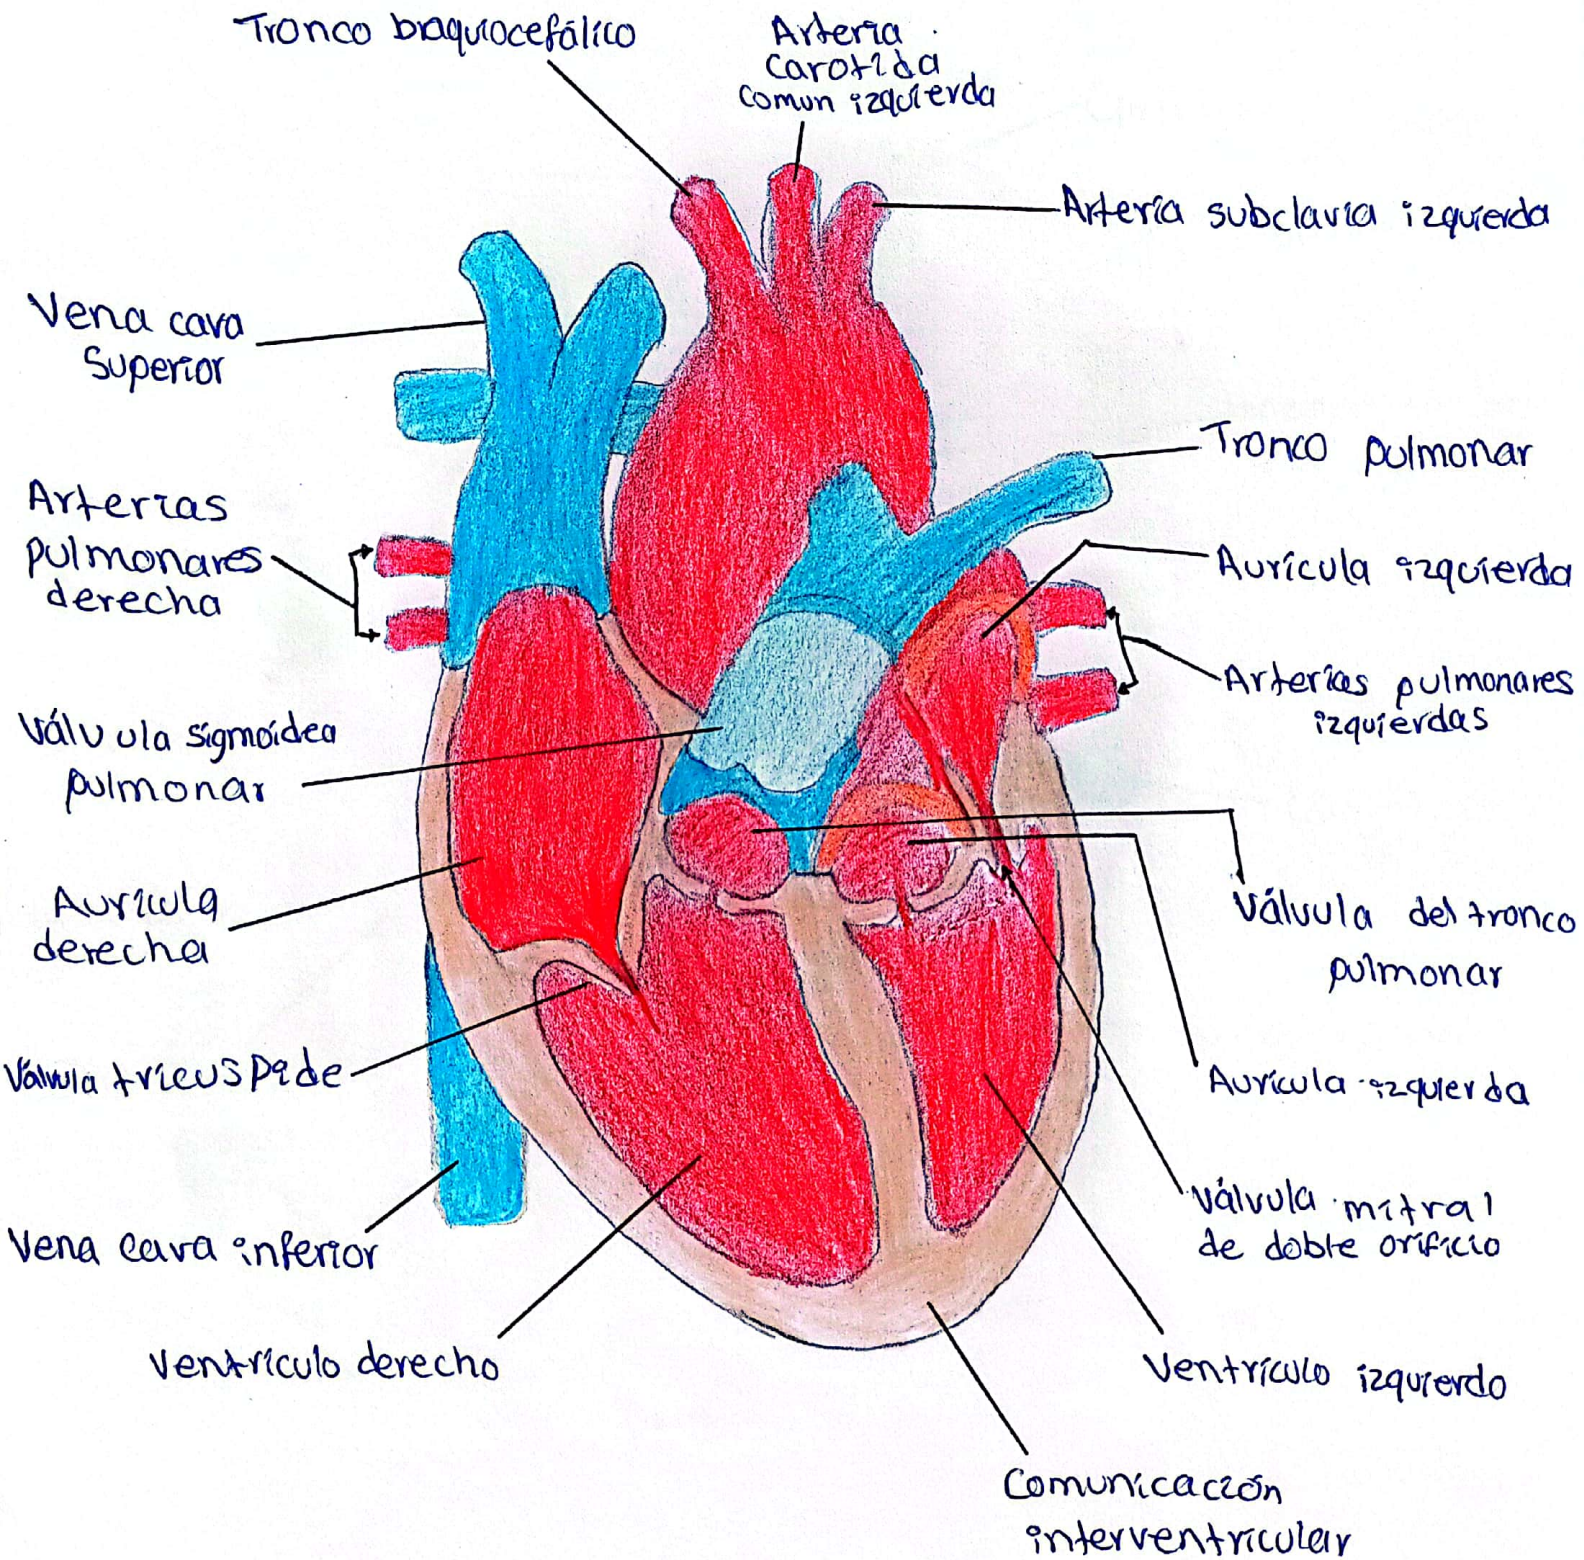 Tronco braquiocefálico
Arteria
carotida
comun izquierda
Arteria subclavia izquierda
Vena cava
superior
Tronco pulmonar
Arterias
pulmonares
derecha
Aurícula izquierda
Arterias pulmonares
izquierdas
Válvula sigmoidea
pulmonar
Aurícula
derecha
Válvula del tronco
pulmonar
Válvula tricuspide
Aurícula izquierda
Válvula mitral
de doble orificio
Vena cava inferior
Ventrículo derecho
Ventrículo izquierdo
Comunicación
interventricular